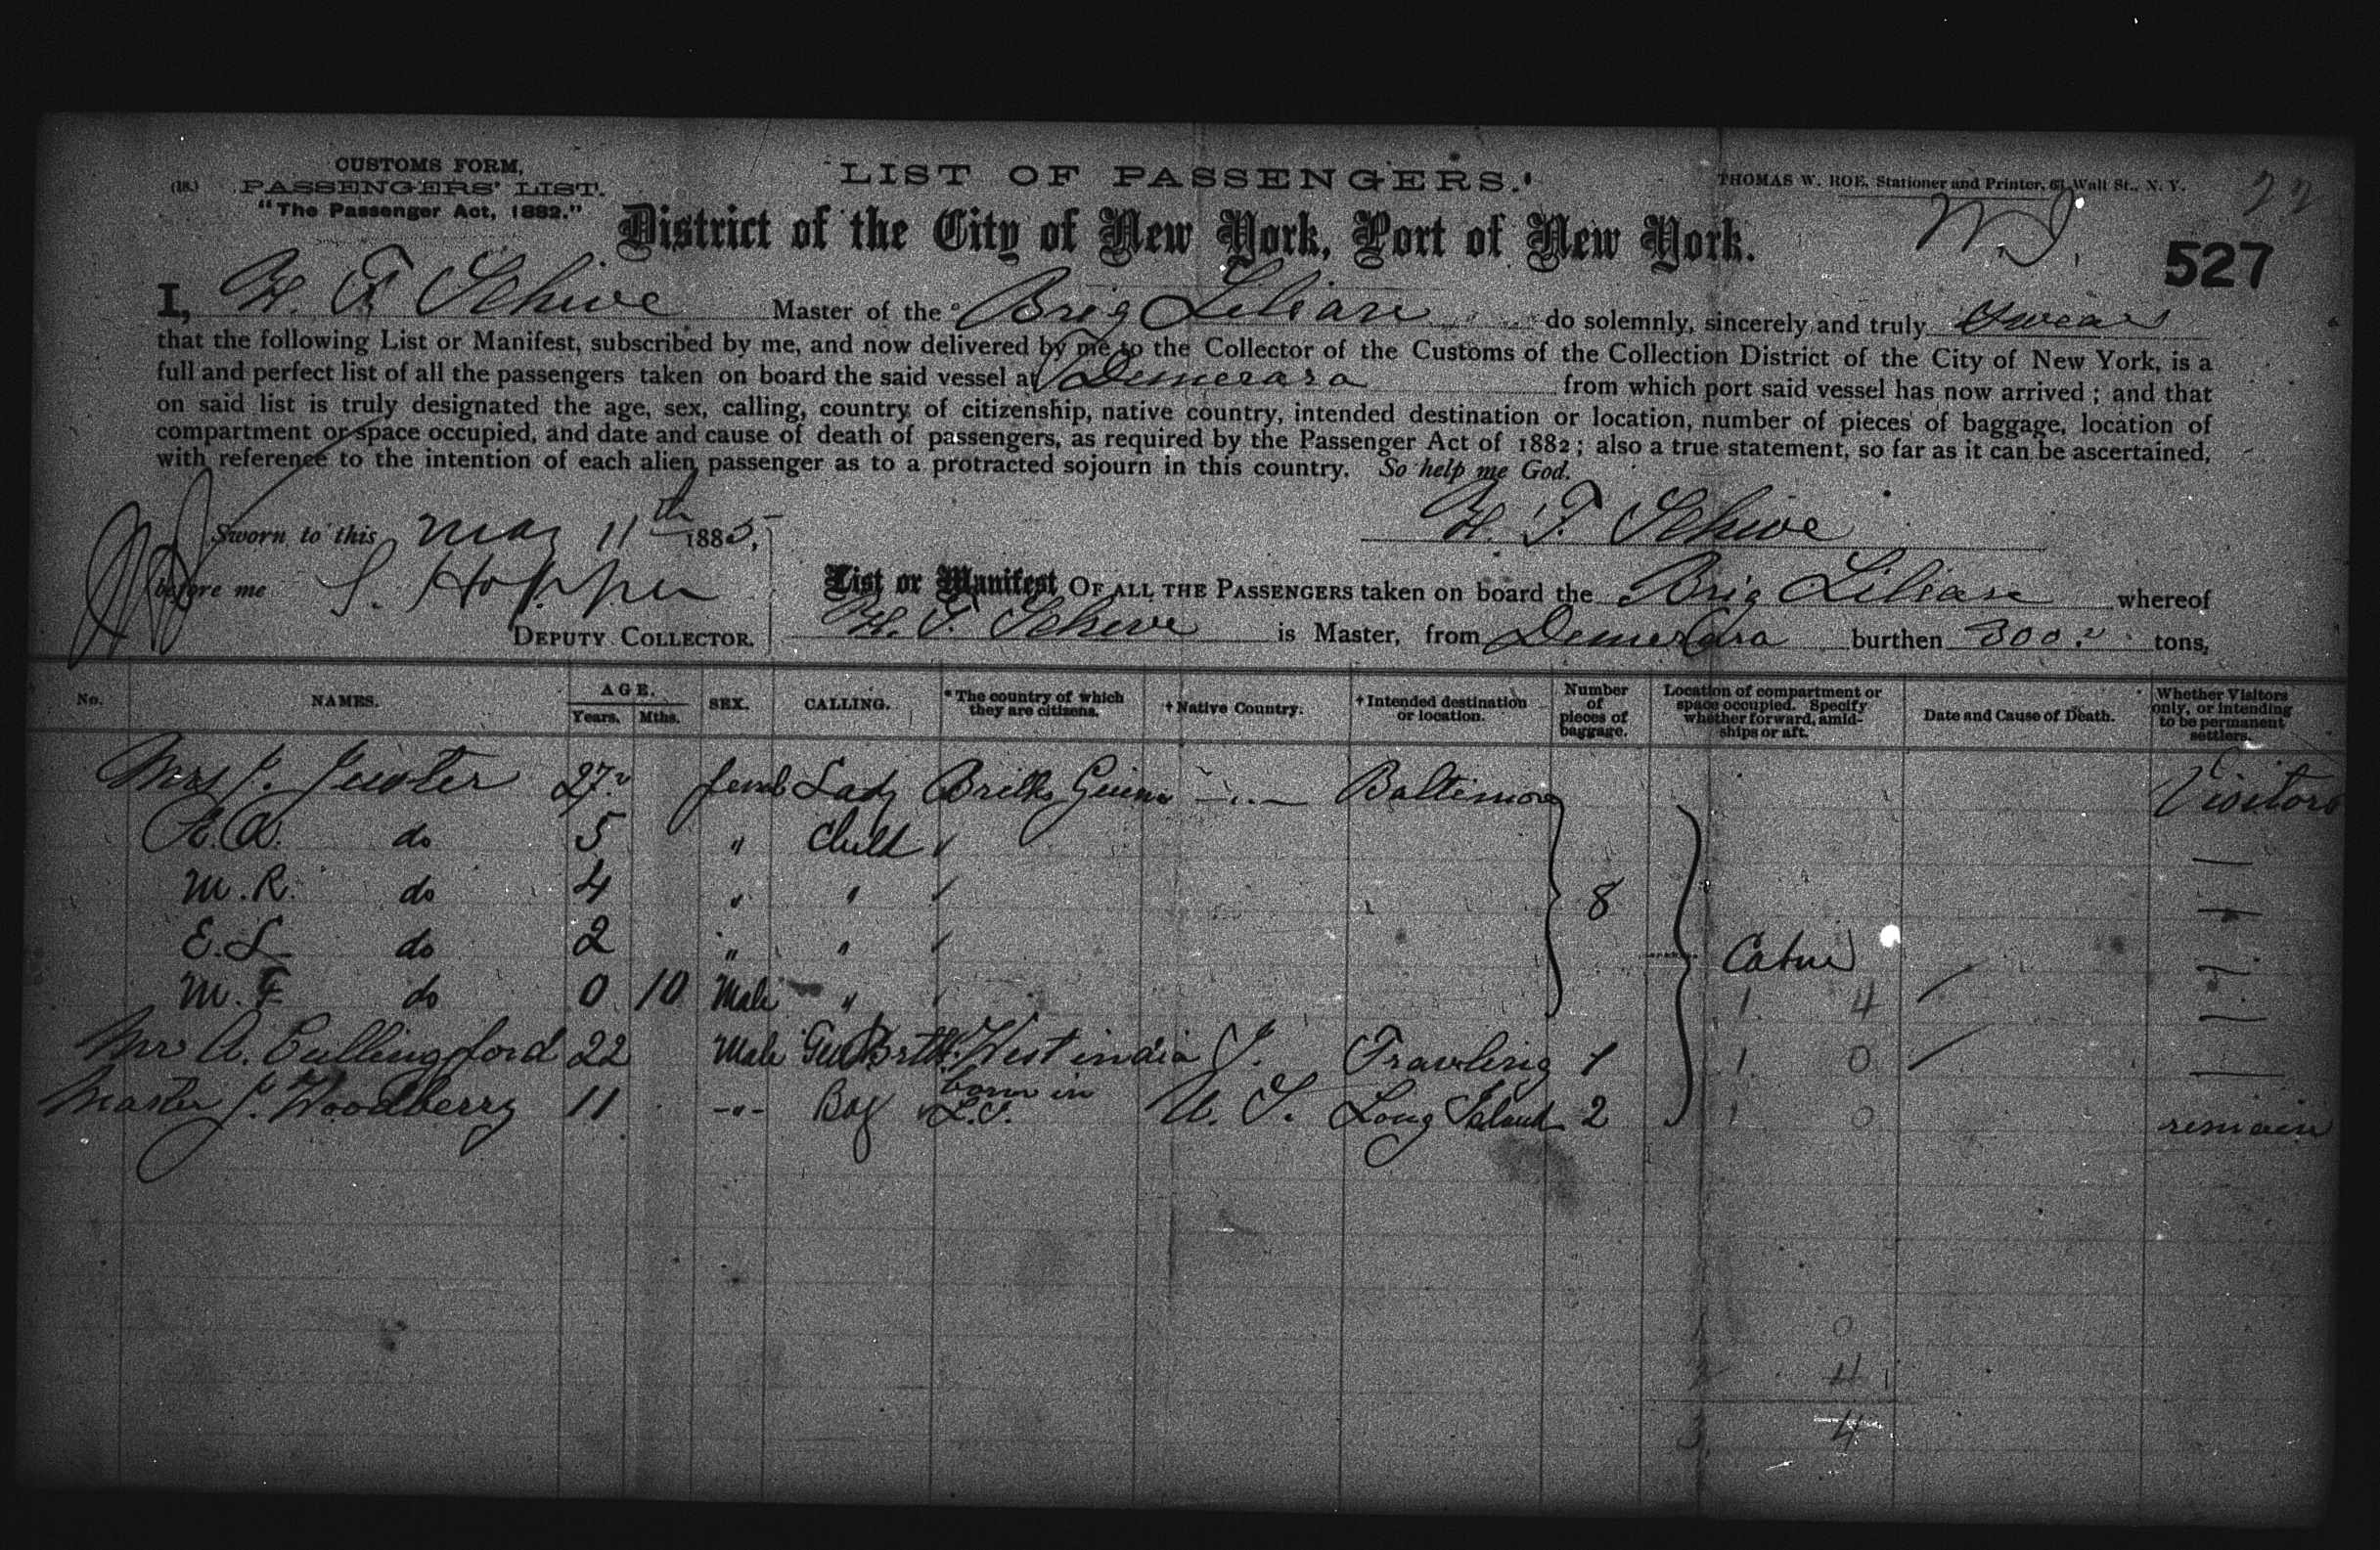 CUSTOMS FORM,
(18.) PASSENGERS' LIST.
"The Passenger Act, 1882."
LIST OF PASSENGERS.
THOMAS W. ROE, Stationer and Printer, 61 Wall St., N. Y.
22
District of the City of New York, Port of New York.
527
I, H. F. Schive Master of the Brig Lilian do solemnly, sincerely and truly swear
that the following List or Manifest, subscribed by me, and now delivered by me to the Collector of the Customs of the Collection District of the City of New York, is a
full and perfect list of all the passengers taken on board the said vessel at Demerara from which port said vessel has now arrived; and that
on said list is truly designated the age, sex, calling, country of citizenship, native country, intended destination or location, number of pieces of baggage, location of
compartment or space occupied, and date and cause of death of passengers, as required by the Passenger Act of 1882; also a true statement, so far as it can be ascertained,
with reference to the intention of each alien passenger as to a protracted sojourn in this country. So help me God.
Sworn to this May 11th 1885,
H. F. Schive
before me S. Hopper
DEPUTY COLLECTOR.
List or Manifest OF ALL THE PASSENGERS taken on board the Brig Lilian whereof
H. F. Schive is Master, from Demerara burthen 300 tons,
No. NAMES. AGE. Years. Mths. SEX. CALLING. *The country of which they are citizens. †Native Country. †Intended destination or location. Number of pieces of baggage. Location of compartment or space occupied. Specify whether forward, amidships or aft. Date and Cause of Death. Whether Visitors only, or intending to be permanent settlers.
Mrs J. 27 Lady -"- Baltimore Visitors
do 5 " Child "
M. R. do 4 " " " 8
E. L do 2 " " " Cabin
M. F do 0 10 Male " " 1 4
Mr A. Cullingford 22 Male West india I. Travling 1 1 0
Master J. Woodberry 11 -"- Boy born in L.I. U. S. Long Island 2 1 0 remain
0
4
3 4